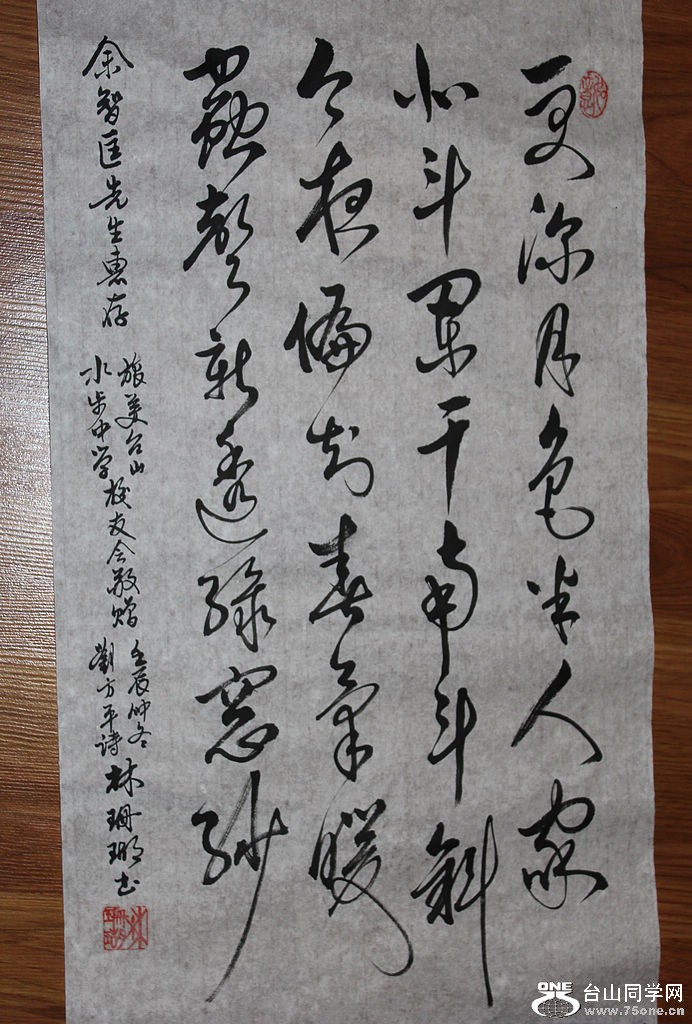 更深月色半人家
北斗闌干南斗斜
今夜偏知春氣暖
蟲聲新透綠窓紗
余智匡先生惠存
旅美台山
水步中学
校友会敬赠
壬辰仲冬
劉方平诗
林珊瑚书
ONE
台山同学网
www.75one.cn